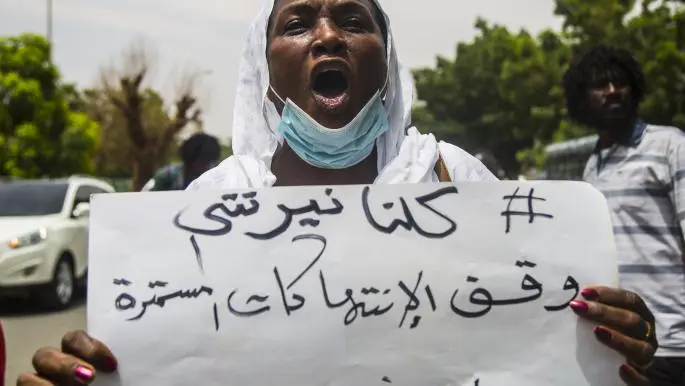 # كلنا نيرتتي
وقف الإنتهاكات المستمرة